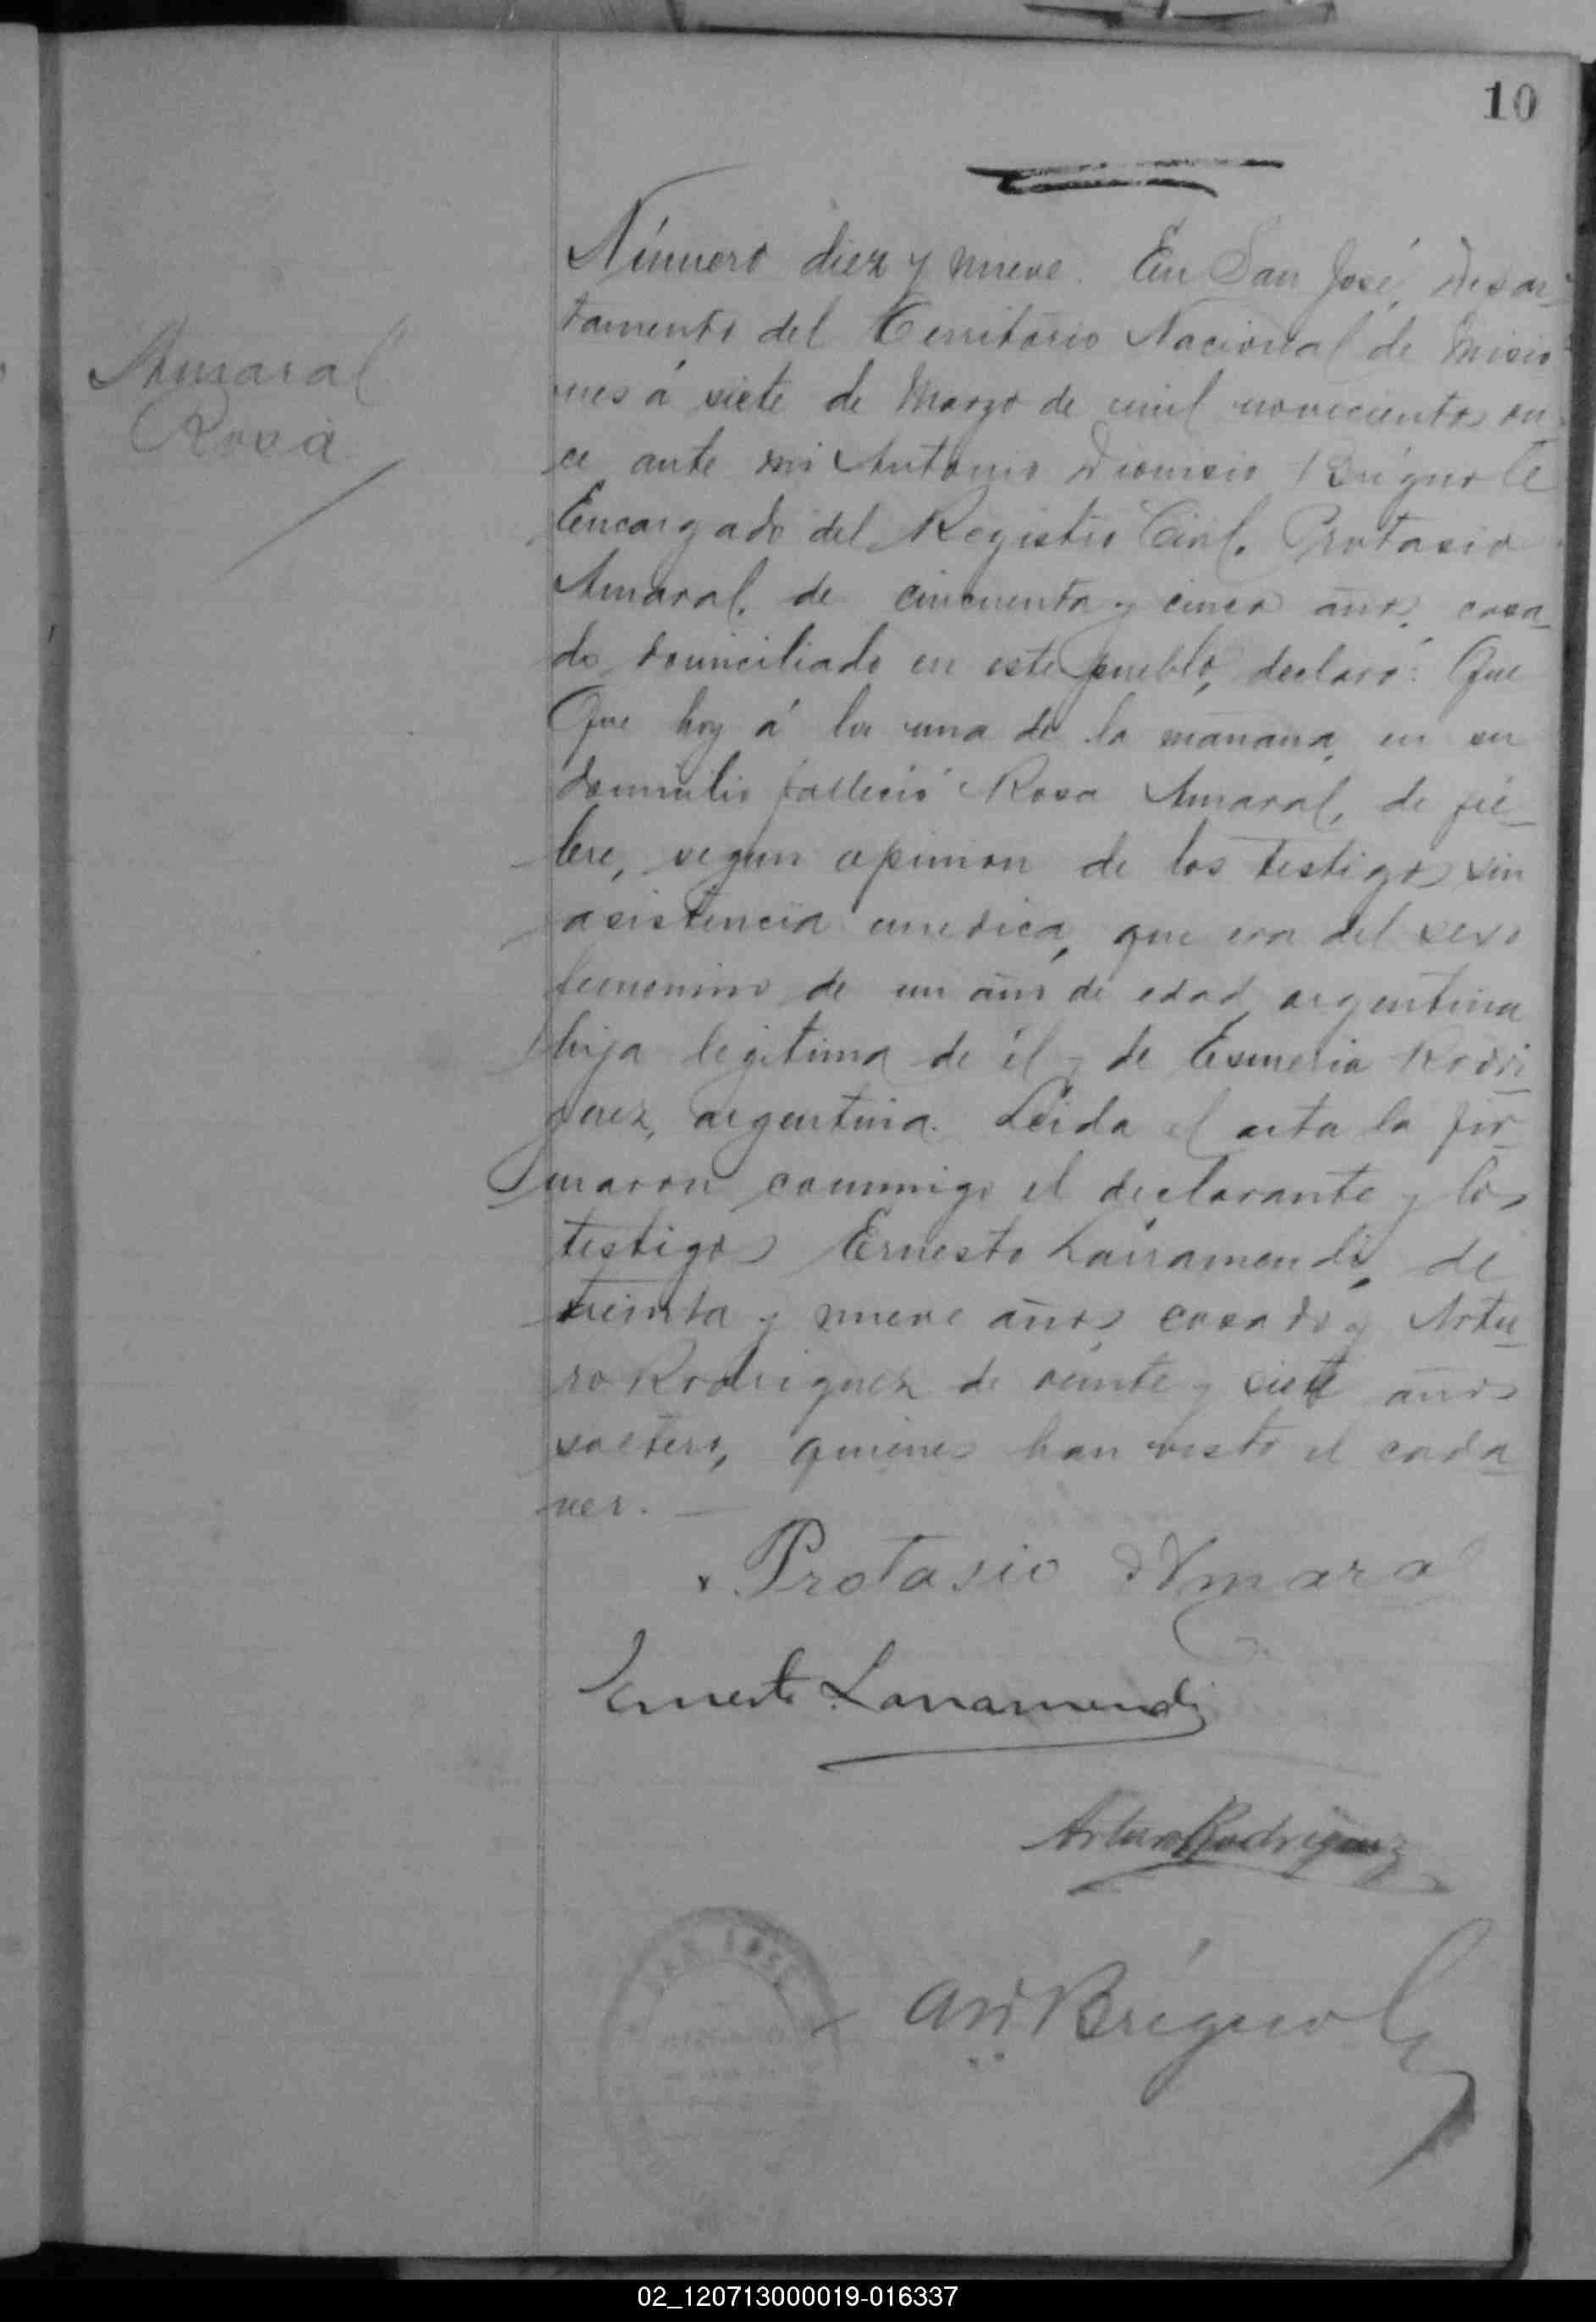 10
Amaral
Rosa
Número diez y nueve. En San José, Depar
tamento del Territorio Nacional de Misio
nes á siete de Marzo de mil novecientos on
ce ante mi Antonio Dionisio Brignole
Encargado del Registro Civil. Protasio
Amaral, de cincuenta y cinco años, casa
do domiciliado en este pueblo, declaró: Que
Que hoy á la una de la mañana, en su
domicilio falleció Rosa Amaral, de fie
bre, segun opinion de los testigos sin
asistencia medica, que era del sexo
femenino de un año de edad, argentina
hija legitima de él y de Esmeria Rodri
guez, argentina. Leida el acta la fir
maron conmigo el declarante y los
testigos Ernesto Larramendi, de
treinta y nueve años, casado y Artu
ro Rodriguez de veinte y siete años
soltero, quienes han visto el cada
ver.
Protasio Amara
Ernesto Larramendi
Arturo Rodriguez
SAN JOSE
A D Brignole
02_120713000019-016337